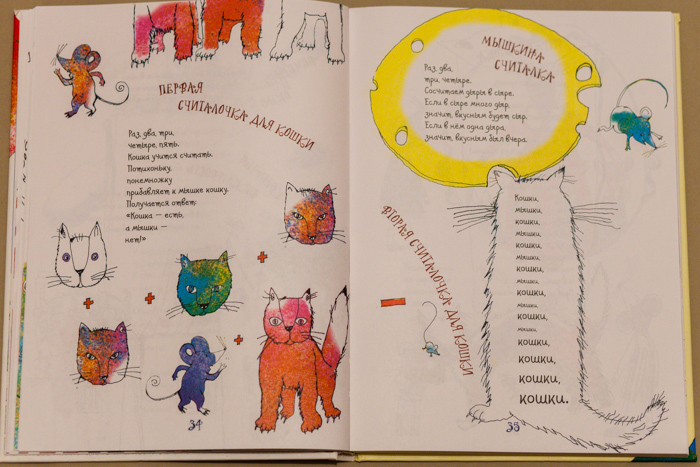 ПЕРВАЯ
СЧИТАЛОЧКА ДЛЯ КОШКИ
Раз, два, три,
четыре, пять.
Кошка учится считать.
Потихоньку,
понемножку
прибавляет к мышке кошку.
Получается ответ:
«Кошка — есть,
а мышки —
нет!»
34
МЫШКИНА
СЧИТАЛКА
Раз, два,
три, четыре.
Сосчитаем дырки в сыре.
Если в сыре много дыр,
значит, вкусным будет сыр.
Если в нём одна дыра,
значит, вкусным был вчера.
ВТОРАЯ СЧИТАЛОЧКА ДЛЯ КОШКИ
Кошки,
мышки,
кошки,
мышки,
кошки,
мышки,
кошки,
мышки,
кошки,
мышки,
кошки,
мышки,
кошки,
кошки,
кошки,
кошки.
35